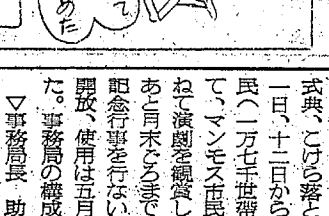 て
めた
式典、こけら落と
一日、十二日から
民（一万七千世帯
て、マンモス市民
ねて演劇を観賞し
あと月末ごろまで
記念行事を行ない
開放、使用は五月
た。事務局の構成
▽事務局長　助